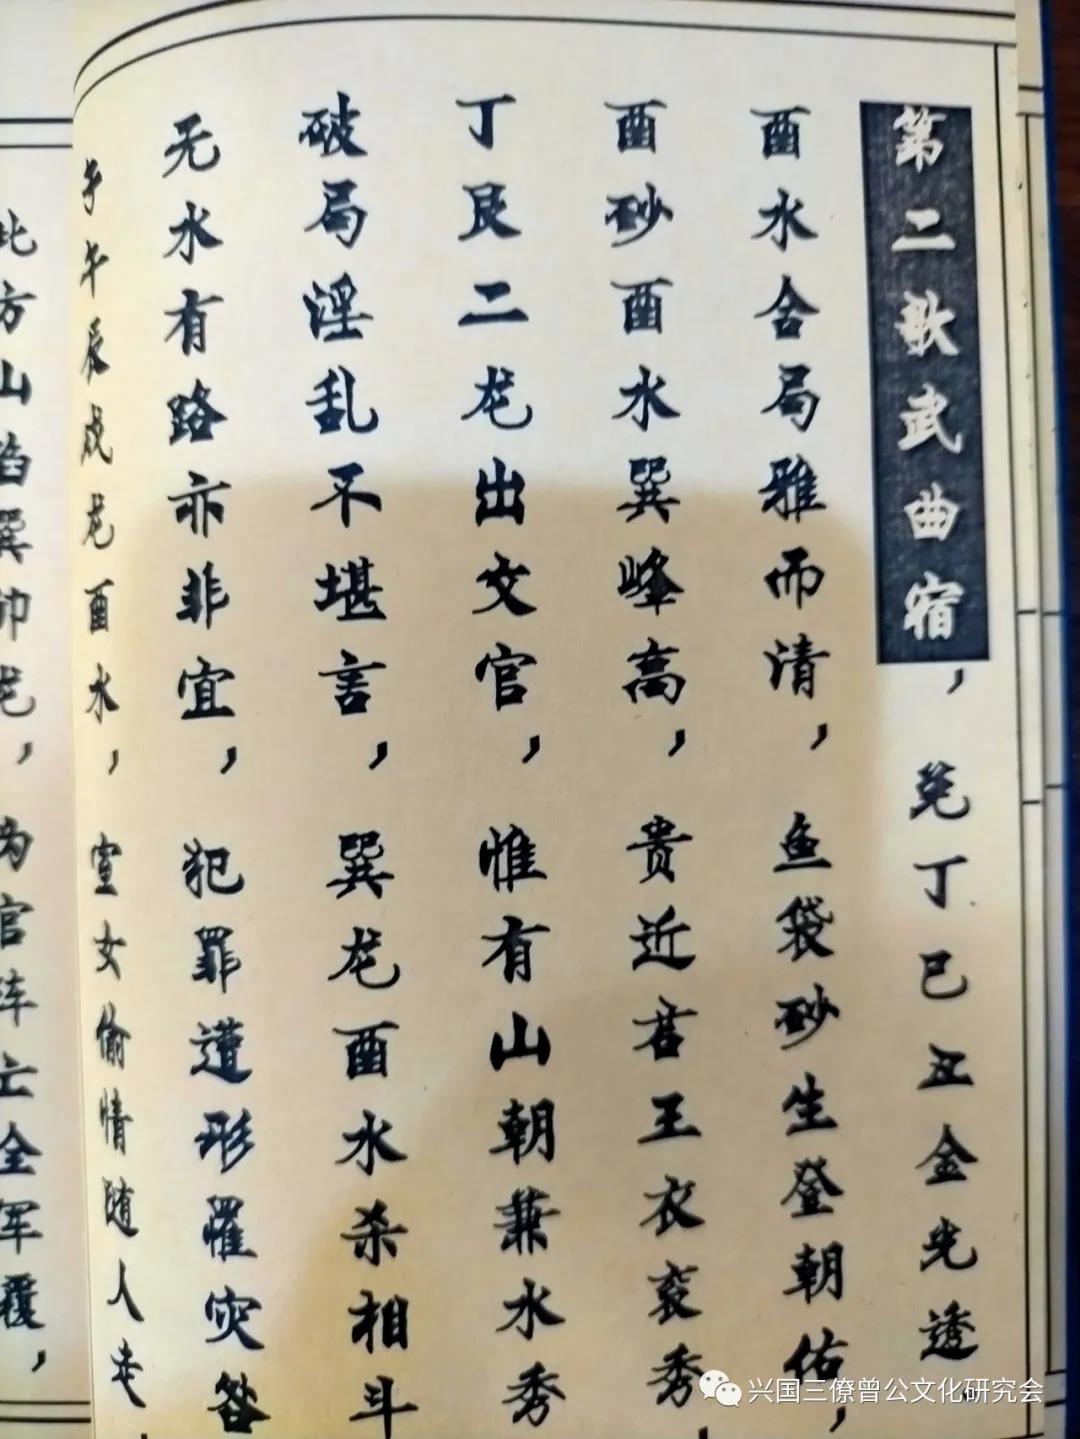 第二歌武曲宿，兑丁巳丑金光透
酉水合局雅而清，鱼袋砂生登朝佑，
酉砂酉水巽峰高，贵近君王衣衮秀，
丁艮二龙出文官，惟有山朝兼水秀
破局淫乱不堪言，巽龙酉水杀相斗
无水有路亦非宜，犯罪遭形罹灾咎
子午辰戌龙酉水，室女偷情随人走，
北方山陷巽卯龙，为官阵亡全军覆，
兴国三僚曾公文化研究会